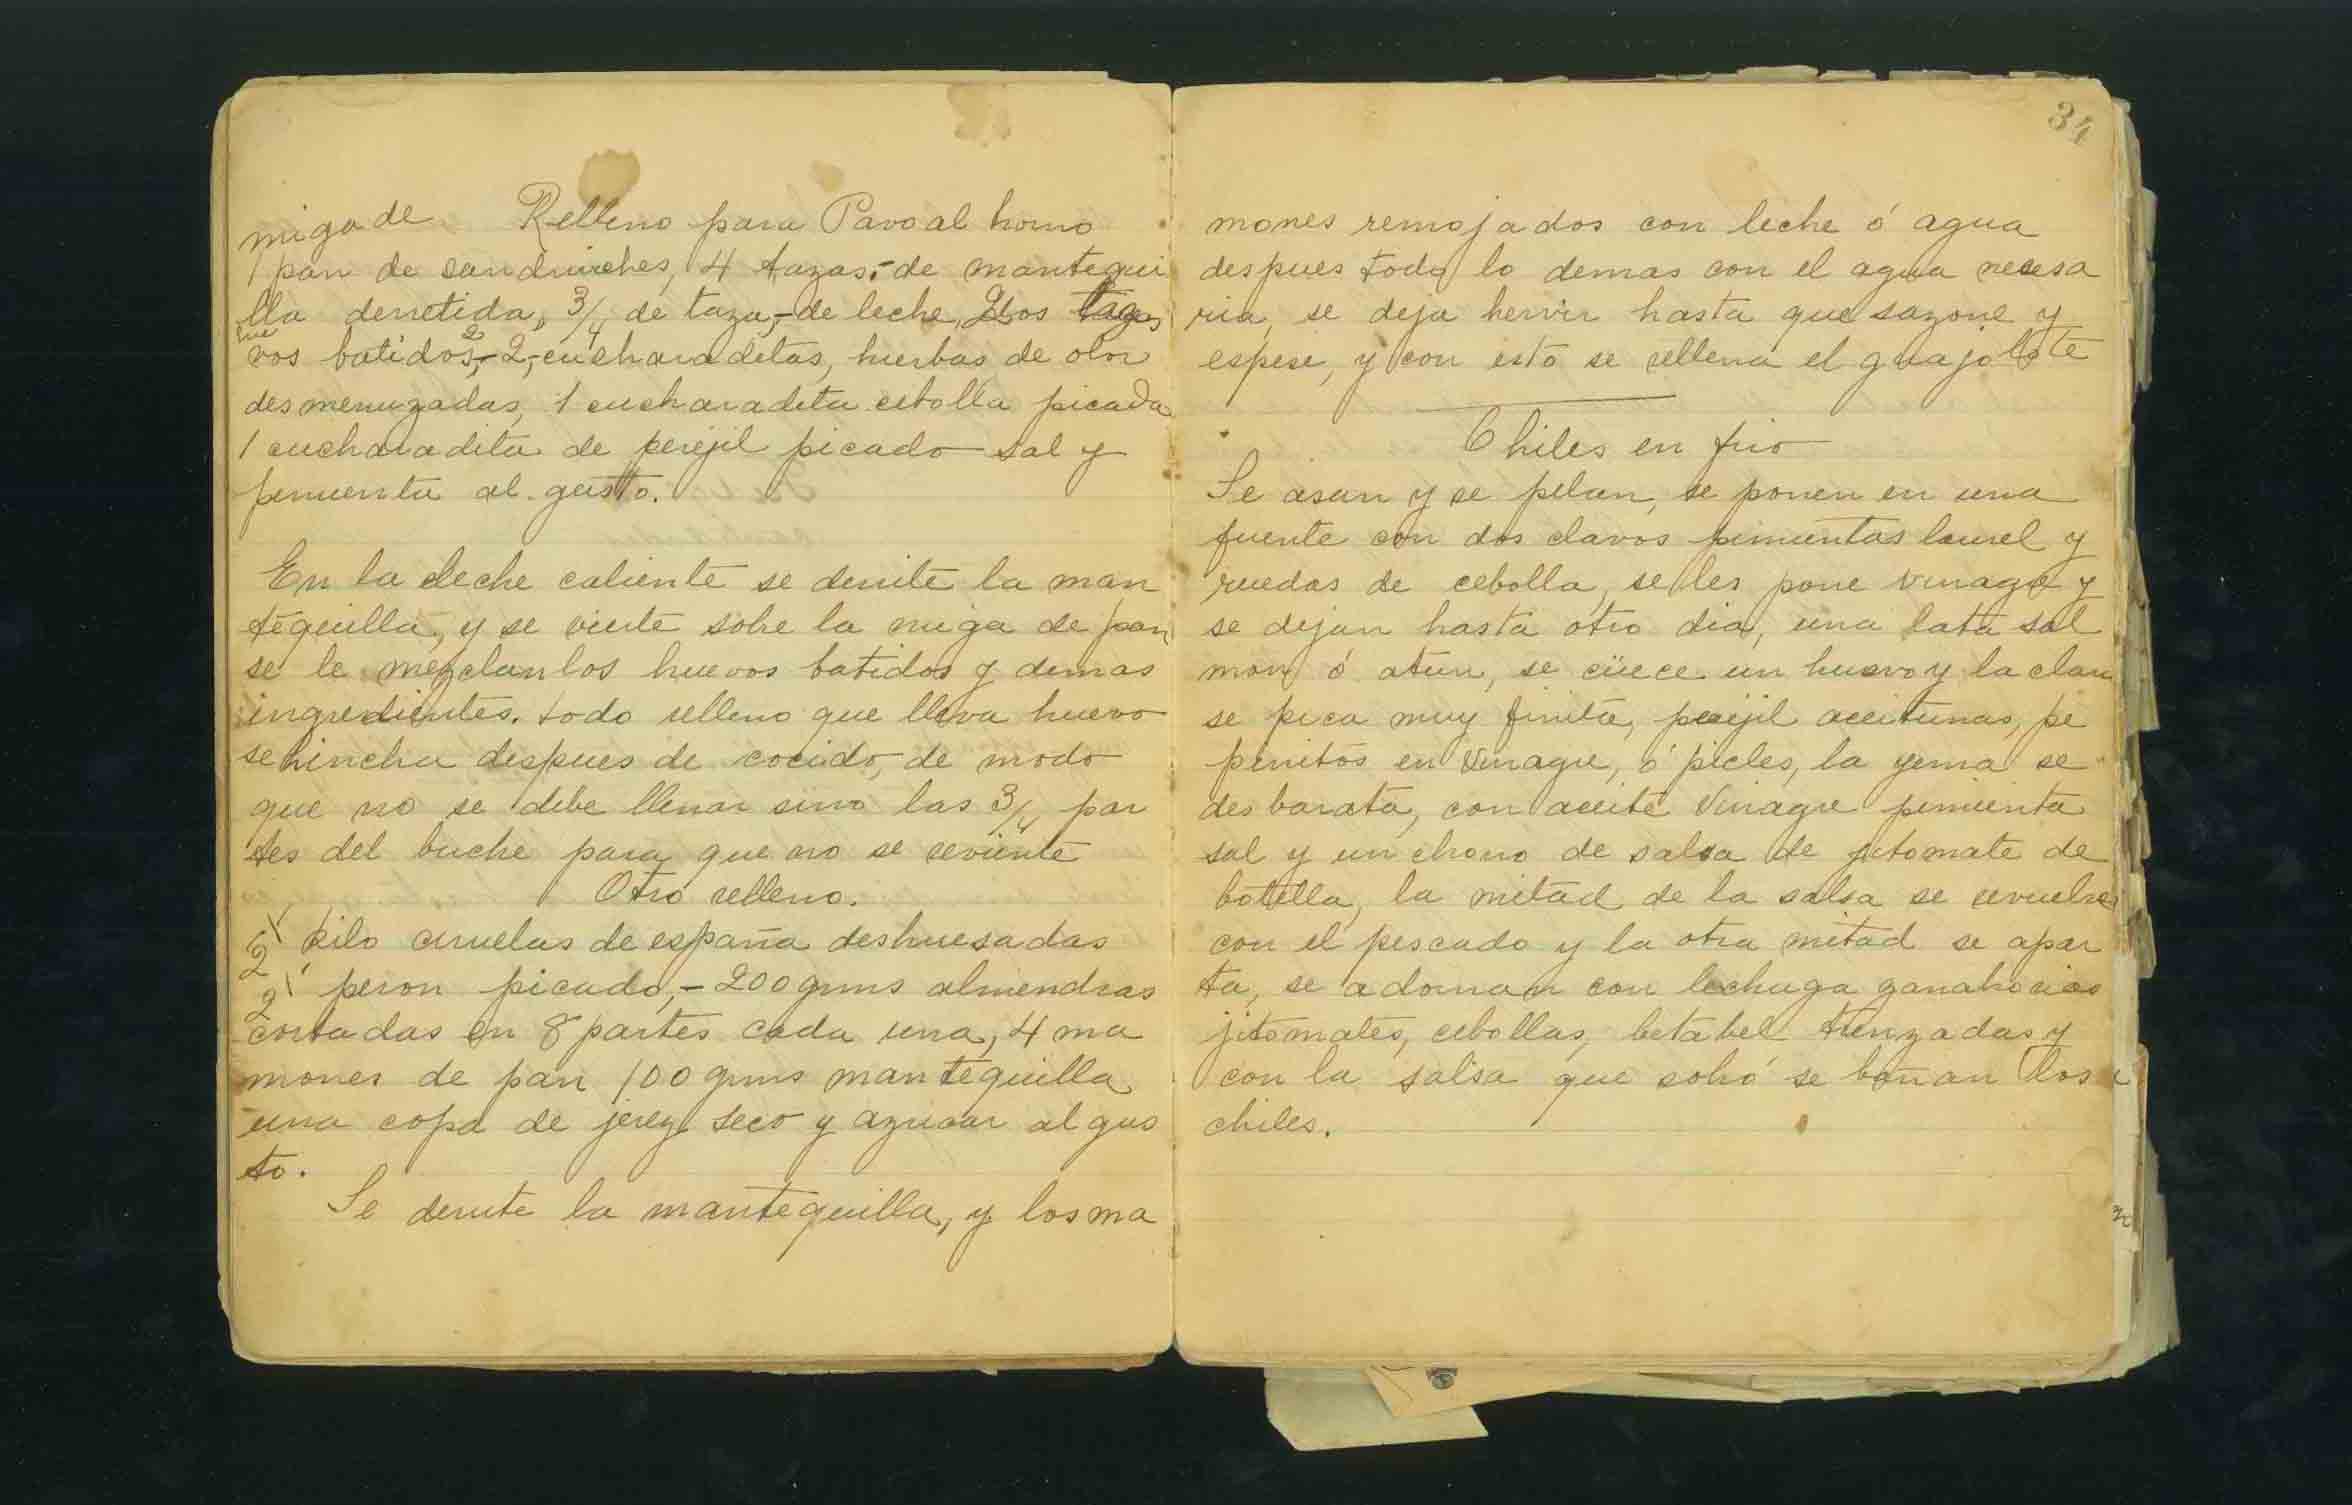 miga de Relleno para Pavo al horno
1 pan de sandwiches, 4 tazas,- de mantequi
lla derretida, 3/4 de taza,- de leche, 2 dos
hue
vos batidos,- 2,- cucharaditas, hierbas de olor
desmenuzadas, 1 cucharadita cebolla picada
1 cucharadita de perejil picado sal y
pimienta al gusto.
En la leche caliente se derrite la man
tequilla, y se vierte sobre la miga de pan,
se le mezclan los huevos batidos y demas
ingredientes. todo relleno que lleva huevo
se hincha despues de cocido, de modo
que no se debe llenar sino las 3/4 par
tes del buche para que no se reviente
Otro relleno.
1/2 kilo ciruelas de españa deshuesadas
1/2 peron picado,- 200 grms almendras
cortadas en 8 partes cada una, 4 ma
mones de pan 100 grms mantequilla
una copa de jerez seco y azucar al gus
to.
Se derrite la mantequilla, y los ma
34
mones remojados con leche ó agua
despues todo lo demas con el agua necesa
ria, se deja hervir hasta que sazone y
espese, y con esto se rellena el guajolote
Chiles en frio
Se asan y se pelan, se ponen en una
fuente con dos clavos pimientas laurel y
ruedas de cebolla, se les pone vinagre y
se dejan hasta otro dia, una lata sal
mon ó atun, se cüece un huevo y la clara
se pica muy finita, perejil aceitunas, pe
pinitos en vinagre, ó picles, la yema se
desbarata, con aceite vinagre pimienta
sal y un chorro de salsa de jitomate de
botella, la mitad de la salsa se revuelve
con el pescado y la otra mitad se apar
ta, se adornan con lechuga zanahorias
jitomates, cebollas, betabel trenzadas y
con la salsa que sobró se bañan los
chiles.